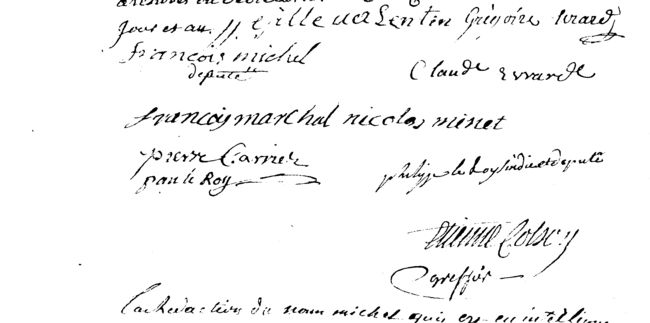 jour et an // Gille valentin Grégoire Evrard
françois michel
député
Claude Evrarde
francois marchal nicolas minet
pierre Carrier
paul le Roy
philipp le Roy sindic et député
Etienne Colson
greffier
La Rédaction du nom michel qui est en interligne